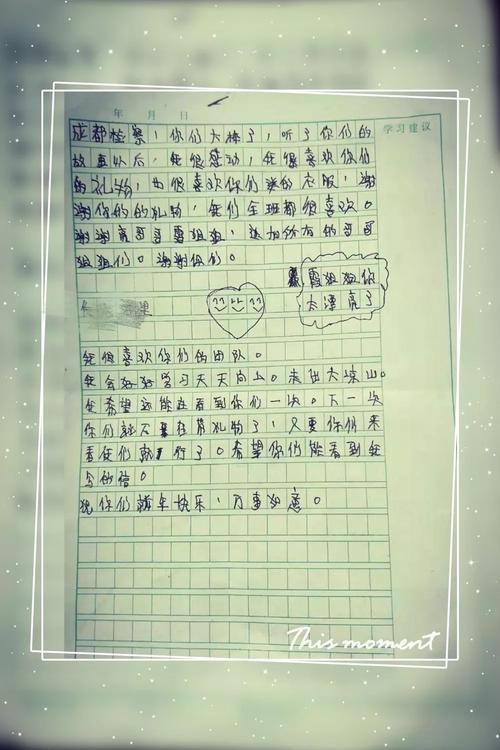 年 月 日
学习建议
成都检察,你们大棒了,听了你们的
故事以后,我很感动,我很喜欢你们
的礼物,也很喜欢你们送的衣服,谢
谢你的的礼物,我们全班都很喜欢。
谢谢亮哥哥雪姐姐,还加所有的哥哥
姐姐们。谢谢你们。
霞姐姐你
太漂亮了
我很喜欢你们的团队。
我会好好学习天天向上。走出大凉山。
我希望还能在看到你们一次。下一次
你们就不在带礼物了,只要你们来
看我们就行了。希望你们能看到我
写的信。
祝你们新年快乐,万事如意。
This moment